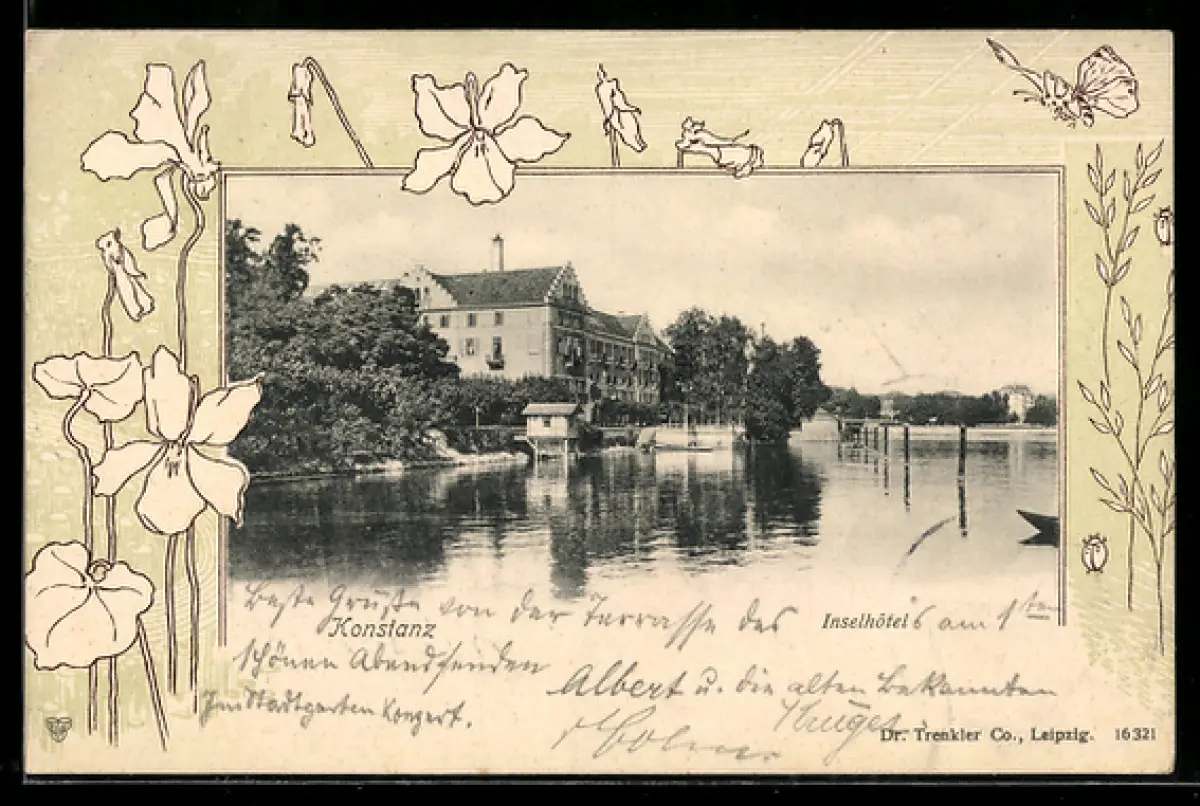 Beste Grüße von der Terrasse des Inselhôtel's am 1sten
Konstanz
schönen Abend senden
Albert u. die alten Bekannten
Im Stadtgarten Konzert.
Dr. Trenkler Co., Leipzig. 16321